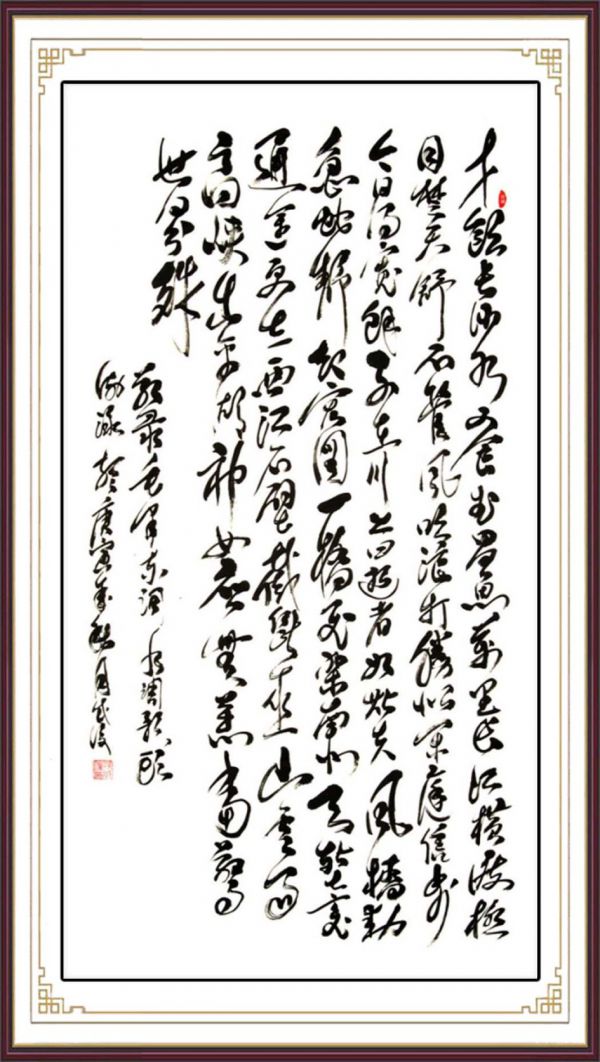 才饮长沙水又食武昌鱼万里长江横渡极
目楚天舒不管风吹浪打胜似闲庭信步
今日得宽馀子在川上曰逝者如斯夫风樯动
龟蛇静起宏图一桥飞架南北天堑变
通途更立西江石壁截断巫山云雨
高峡出平湖神女应无恙当惊
世界殊
敬录毛泽东词水调歌头
游泳于庚寅年秋月